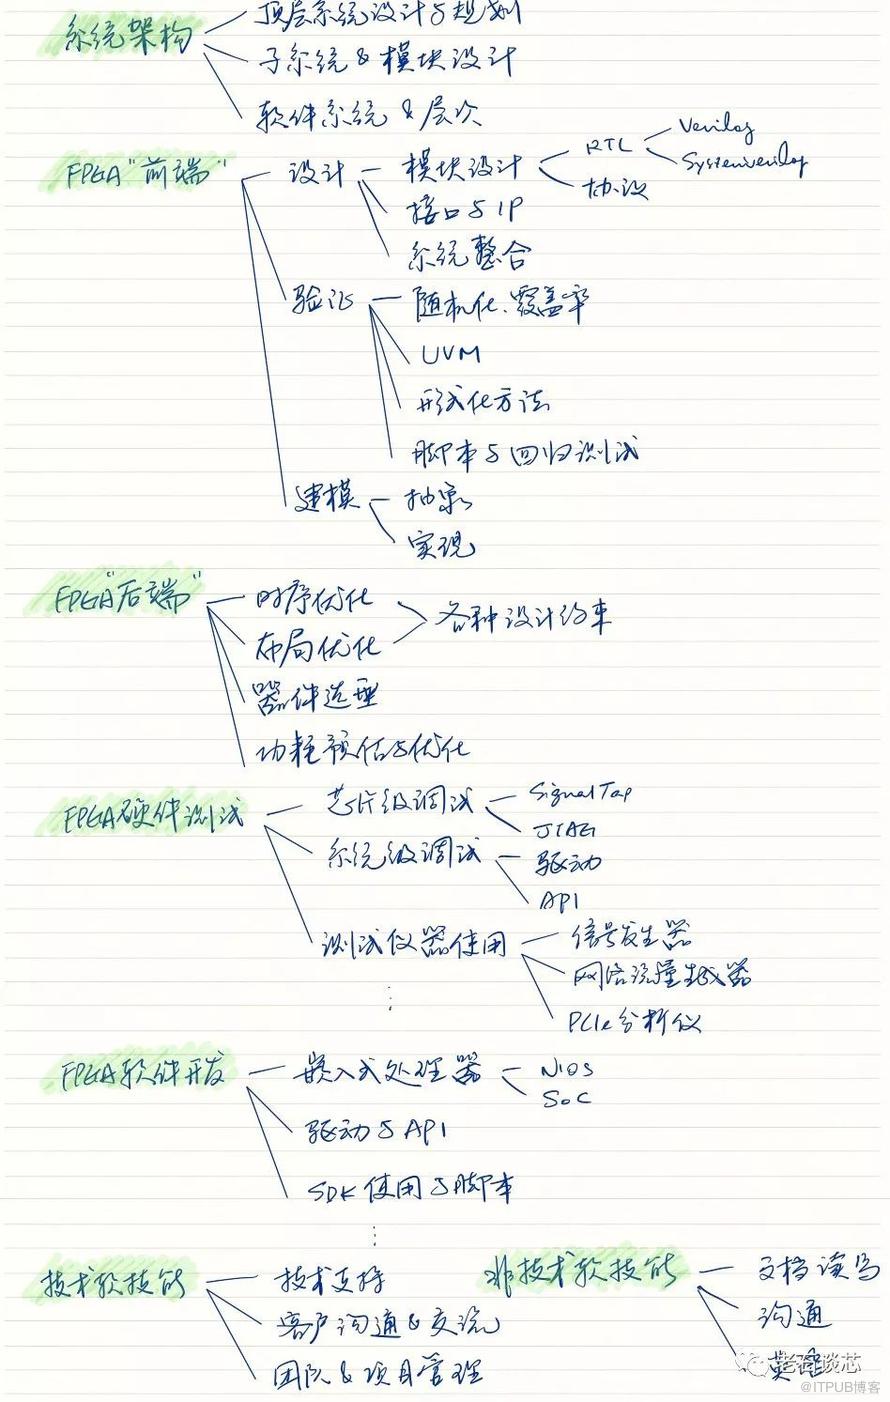 顶层系统设计与规划
系统架构
子系统 & 模块设计
软件系统 & 层次
FPGA "前端"
设计
模块设计
RTL
Verilog
SystemVerilog
协议
接口与IP
系统整合
验证
随机化、覆盖率
UVM
形式化方法
脚本与回归测试
建模
抽象
实现
FPGA "后端"
时序优化
布局优化
各种设计约束
器件选型
功耗预估与优化
FPGA硬件测试
芯片级调试
SignalTap
JTAG
系统级调试
驱动
API
测试仪器使用
信号发生器
网络流量生成器
PCIe分析仪
⋮
FPGA软件开发
嵌入式处理器
NIOS
SoC
驱动与API
SDK使用与脚本
⋮
技术软技能
技术支持
客户沟通&交流
团队&项目管理
非技术软技能
文档读写
沟通
老石谈芯
@ITPUB博客